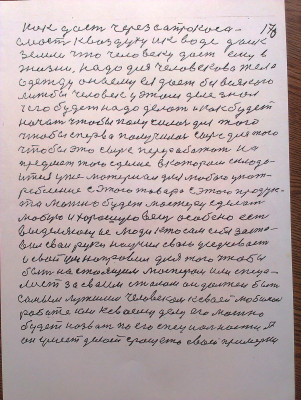 176
как даст через атрокоса-
мость к воздуху и к воде даже
земли что человеку даст ему в
жизни, надо для человекова тела
одежду она ему её даст бы всякого
чтобы человек у этом деле знал
чего будет надо делат и как будет
начат чтобы получилас для того
чтобы сперва получилас сыре для того
чтобы это сыре переработат на
предмет того сделие в котором находи-
тся уже материал для любого упот-
ребление с этого товара с этого продук-
та можно будет мастеру сделат
любую и хорошую вещ особено ест
выделяющие люди кто сам себя заста-
вил свои руки научил свои
и свой направил для того чтобы
быт настоящим мастером или специ-
лист за своим станом он должен быт
самым лутшим человеком к своей любимой
работе или к своему делу его можно
будет назват по его специалности Я
он умеет делат срошего свои примерки